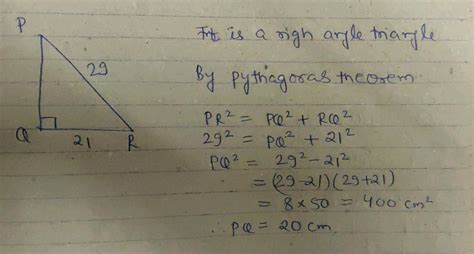 P
It is a righ angle triangle
29
By pythagoras theorem
PR² = PQ² + RQ²
Q
21
R
29² = PQ² + 21²
PQ² = 29² - 21²
= (29-21)(29+21)
= 8 × 50 = 400 cm²
∴ PQ = 20 cm